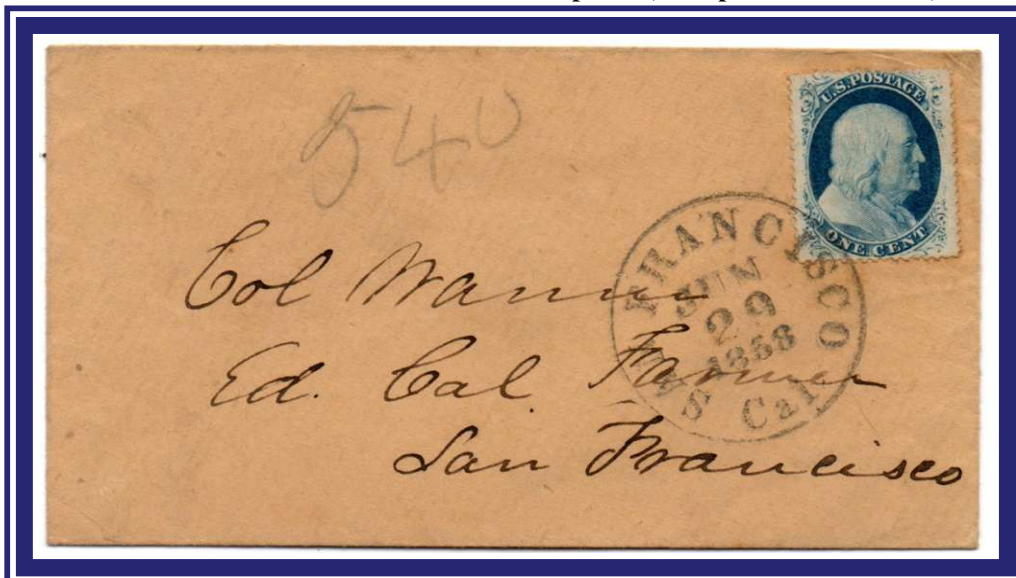 540
U.S. POSTAGE
ONE CENT
SAN FRANCISCO Cal
JUN
29
1858
Col Warner
Ed. Cal. Farmer
San Francisco